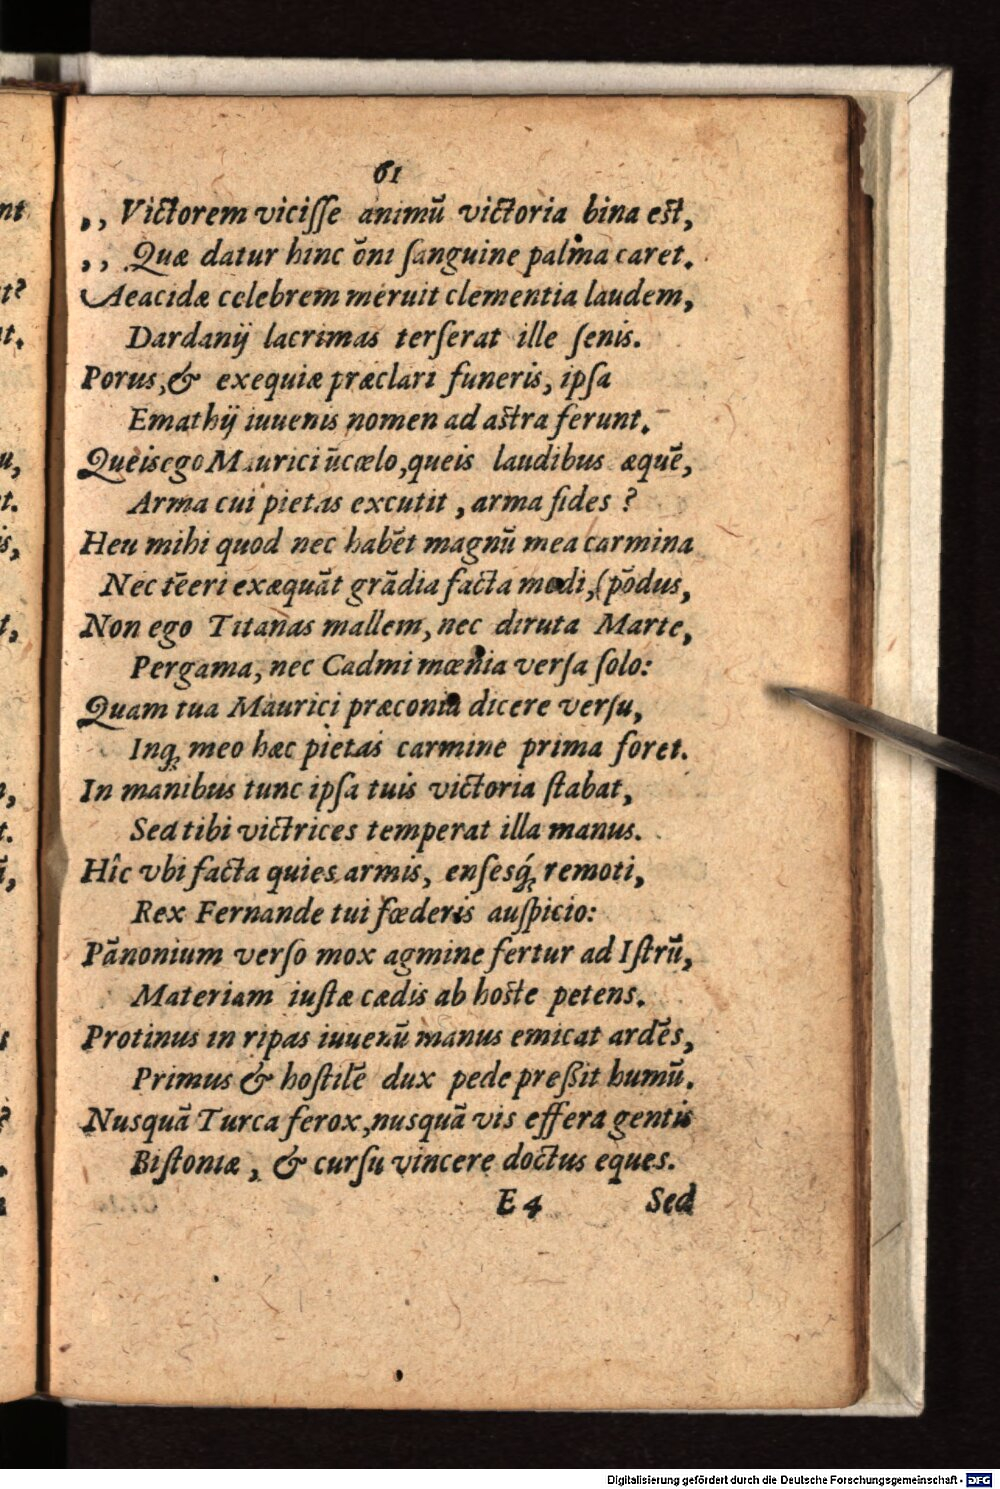 61
,, Victorem viciſſe animū victoria bina eſt,
,, Quæ datur hinc ōni ſanguine palma caret.
Aeacidæ celebrem meruit clementia laudem,
Dardanij lacrimas terſerat ille ſenis.
Porus, & exequiæ præclari funeris, ipſa
Emathij iuuenis nomen ad aſtra ferunt.
Queis ego Maurici ūcœlo, queis laudibus æquē,
Arma cui pietas excutit, arma fides?
Heu mihi quod nec habēt magnū mea carmina
Nec tēeri exæquāt grādia facta modi, (pōdus,
Non ego Titanas mallem, nec diruta Marte,
Pergama, nec Cadmi mœnia verſa ſolo:
Quam tua Maurici præconia dicere verſu,
Inq́ meo hæc pietas carmine prima foret.
In manibus tunc ipſa tuis victoria ſtabat,
Sed tibi victrices temperat illa manus.
Hîc vbi facta quies armis, enſesq́ remoti,
Rex Fernande tui fœderis auſpicio:
Pānonium verſo mox agmine fertur ad Iſtrū,
Materiam iuſtæ cædis ab hoſte petens.
Protinus in ripas iuuenū manus emicat ardēs,
Primus & hoſtilē dux pede preßit humū.
Nusquā Turca ferox, nusquā vis effera gentis
Biſtoniæ, & curſu vincere doctus eques.
E 4 Sed
nt
t?
t.
u,
t.
is,
t,
t.
Digitalisierung gefördert durch die Deutsche Forschungsgemeinschaft - DFG